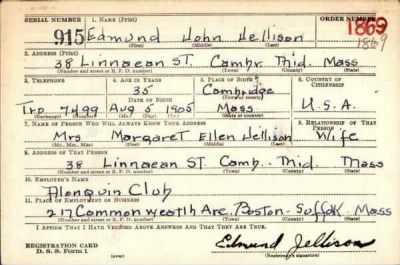 SERIAL NUMBER 1. NAME (Print) ORDER NUMBER
915 Edmund John Jellison 1869
(First) (Middle) (Last) 1869
2. ADDRESS (Print)
38 Linnaean ST. Cambr Mid. Mass
(Number and street or R. F. D. number) (Town) (County) (State)
3. TELEPHONE 4. AGE IN YEARS 5. PLACE OF BIRTH 6. COUNTRY OF CITIZENSHIP
35 Cambridge
DATE OF BIRTH
Tro 7499 Aug 5 1905 Mass U.S.A.
(Exchange) (Number) (Mo.) (Day) (Yr.) (State or country)
7. NAME OF PERSON WHO WILL ALWAYS KNOW YOUR ADDRESS 8. RELATIONSHIP OF THAT PERSON
Mrs Margaret Ellen Jellison Wife
(Mr., Mrs., Miss) (First) (Middle) (Last)
9. ADDRESS OF THAT PERSON
38 Linnaean ST Camb.. Mid. Mass
(Number and street or R. F. D. number) (Town) (County) (State)
10. EMPLOYER'S NAME
Alonquin Club
11. PLACE OF EMPLOYMENT OR BUSINESS
217 Common Wealth Ave. Boston. Suffolk Mass
(Number and street or R. F. D. number) (Town) (County) (State)
I AFFIRM THAT I HAVE VERIFIED ABOVE ANSWERS AND THAT THEY ARE TRUE.
REGISTRATION CARD
D. S. S. Form 1 Edmund Jellison
(Registrant's signature)